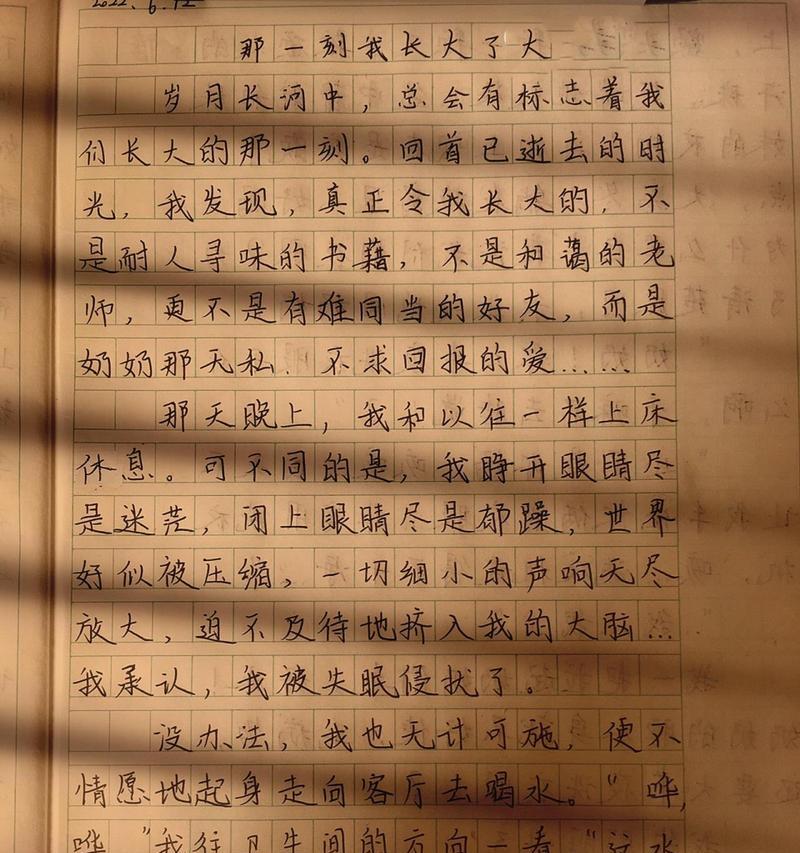 2022.6.12
那一刻我长大了大
岁月长河中，总会有标志着我
们长大的那一刻。回首已逝去的时
光，我发现，真正令我长大的，不
是耐人寻味的书藉，不是和蔼的老
师，更不是有难同当的好友，而是
奶奶那无私、不求回报的爱……
那天晚上，我和以往一样上床
休息。可不同的是，我睁开眼睛尽
是迷茫，闭上眼睛尽是郁躁，世界
好似被压缩，一切细小的声响无尽
放大，迫不及待地挤入我的大脑…
我承认，我被失眠侵扰了。
没办法，我也无计可施，便不
情愿地起身走向客厅去喝水。“哗，
哗”我往卫生间的方向一看“这水